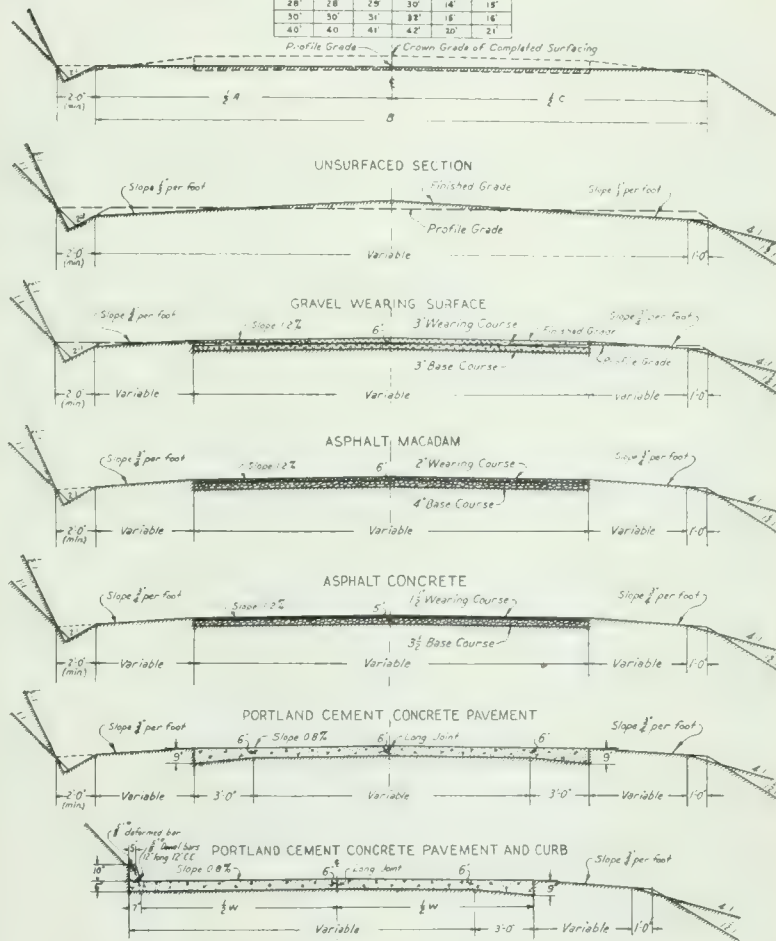 28' 28 29' 30' 14' 15'
30' 30' 31' 32' 15' 16'
40' 40 41' 42' 20' 21'
Profile Grade Crown Grade of Completed Surfacing
2'-0" (min) ½ A ½ C
B
UNSURFACED SECTION
Slope per foot Finished Grade Slope per foot
Profile Grade
2'-0" (min) Variable 1'-0" 4:1
GRAVEL WEARING SURFACE
Slope per foot Slope 1.2% 6" 3" Wearing Course Finished Grade Slope ¾" per foot
3" Base Course Profile Grade 4:1
2'-0" (min) Variable Variable Variable 1'-0"
ASPHALT MACADAM
Slope ¾" per foot Slope 1.2% 6" 2" Wearing Course Slope ¾" per foot
4" Base Course 4:1
2'-0" (min) Variable Variable Variable 1'-0"
ASPHALT CONCRETE
Slope ¾" per foot Slope 1.2% 5" 1½" Wearing Course Slope ¾" per foot
3½" Base Course 4:1
2'-0" (min) Variable Variable Variable 1'-0"
PORTLAND CEMENT CONCRETE PAVEMENT
Slope per foot 9" 6" Slope 0.8% 6" Long Joint 6" 9" Slope ¾" per foot
4:1
2'-0" (min) Variable 3'-0" Variable 3'-0" Variable 1'-0"
deformed bar
5" Dowel bars
12" long 12" CC
PORTLAND CEMENT CONCRETE PAVEMENT AND CURB
10" Slope 0.8% 6" Long Joint 6" 9" Slope per foot
4:1
7" ½ W ½ W
Variable 3'-0" Variable 1'-0"